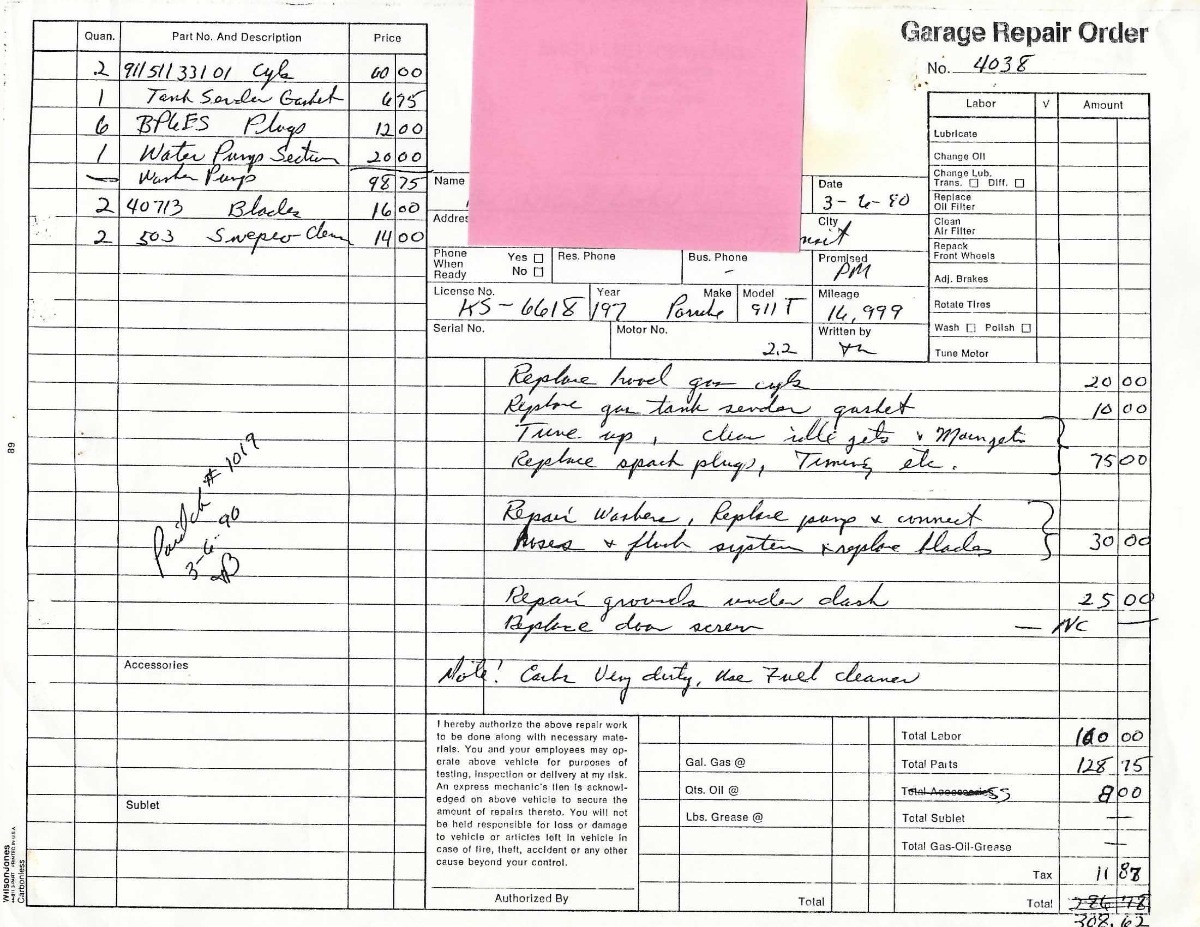 Garage Repair Order
No. 4038
Quan. Part No. And Description Price
2 91151133101 Cyls 60 00
1 Tank Sender Gasket 6 75
6 BP6ES Plugs 12 00
1 Water Pump Section 20 00
— Washer Pump 98 75
2 40713 Blades 16 00
2 503 Swepco Clean 14 00
Paid ck # 1019
3-6-90
Accessories
Sublet
89
WilsonJones
Carbonless
Name
Address
Date
3-6-90
City
Phone When Ready Yes ☐ No ☐
Res. Phone
Bus. Phone
-
Promised
PM
License No. KS-6618
Year 197
Make Porsche
Model 911T
Mileage
16,999
Serial No.
Motor No.
2.2
Written by
Labor √ Amount
Lubricate
Change Oil
Change Lub.
Trans. ☐ Diff. ☐
Replace
Oil Filter
Clean
Air Filter
Repack
Front Wheels
Adj. Brakes
Rotate Tires
Wash ☐ Polish ☐
Tune Motor
Replace hood gas cyls 20 00
Replace gas tank sender gasket 10 00
Tune up, clean idle jets & Mainjets
Replace spark plugs, Timing etc. 75 00
Repair Washers, Replace pump & connect
hoses & flush system & replace blades 30 00
Repair grounds under dash 25 00
Replace door screw — NC —
Note! Carbs Very dirty, Use Fuel cleaner
I hereby authorize the above repair work
to be done along with necessary mate-
rials. You and your employees may op-
erate above vehicle for purposes of
testing, inspection or delivery at my risk.
An express mechanic's lien is acknowl-
edged on above vehicle to secure the
amount of repairs thereto. You will not
be held responsible for loss or damage
to vehicle or articles left in vehicle in
case of fire, theft, accident or any other
cause beyond your control.
Authorized By
Gal. Gas @
Qts. Oil @
Lbs. Grease @
Total
Total Labor 160 00
Total Parts 128 75
Total Accessories SS 8 00
Total Sublet —
Total Gas-Oil-Grease —
Tax 11 87
Total 286 78
308.62